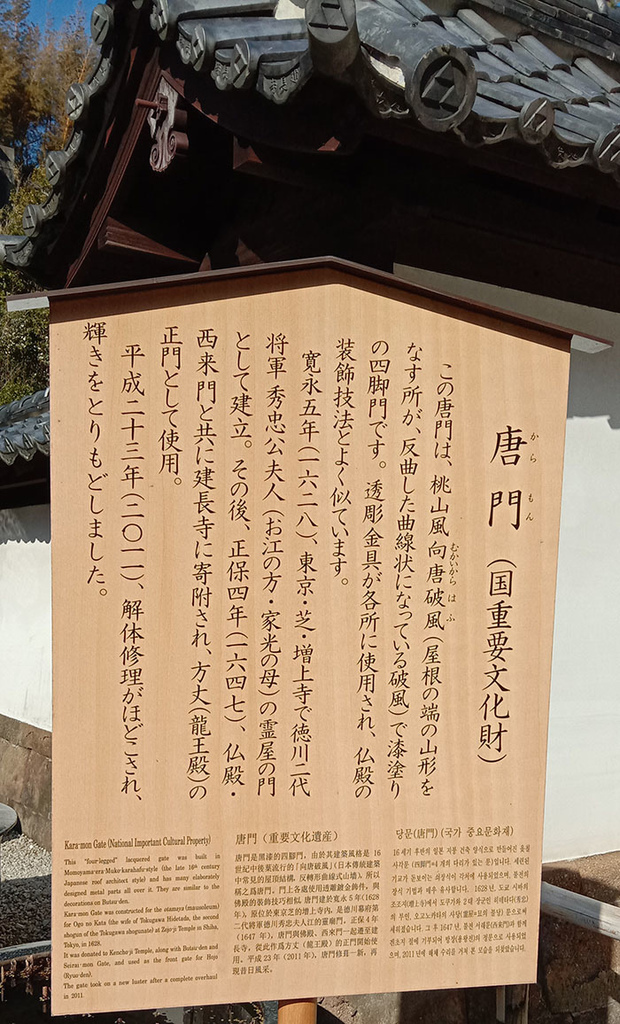 唐門（国重要文化財）
からもん
この唐門は、桃山風向唐破風（屋根の端の山形を
むかいからはふ
なす所が、反曲した曲線状になっている破風）で漆塗り
の四脚門です。透彫金具が各所に使用され、仏殿の
装飾技法とよく似ています。
寛永五年（一六二八）、東京・芝・増上寺で徳川二代
将軍 秀忠公夫人（お江の方・家光の母）の霊屋の門
として建立。その後、正保四年（一六四七）、仏殿・
西来門と共に建長寺に寄附され、方丈（龍王殿）の
正門として使用。
平成二十三年（二〇一一）、解体修理がほどこされ、
輝きをとりもどしました。
Kara-mon Gate (National Important Cultural Property)
This "four-legged" lacquered gate was built in
Momoyama-era Muko-karahafu-style (the late 16th century
Japanese roof architect style) and has many elaborately
designed metal parts all over it. They are similar to the
decorations on Butsu-den.
Kara-mon Gate was constructed for the otamaya (mausoleum)
for Ogo no Kata (the wife of Tokugawa Hidetada, the second
shogun of the Tokugawa shogunate) at Zojo-ji Temple in Shiba,
Tokyo, in 1628.
It was donated to Kencho-ji Temple, along with Butsu-den and
Seirai-mon Gate, and used as the front gate for Hojo
(Ryuo-den).
The gate took on a new luster after a complete overhaul
in 2011.
唐門（重要文化遺産）
唐門是黑漆的四腳門。由於其建築風格是 16
世紀中後葉流行的「向唐破風」（日本傳統建築
中常見的屋頂結構，反轉形曲線式山墻），所以
稱之爲唐門。門上各處使用透雕鍍金飾件，與
佛殿的裝飾技巧相似。唐門建於寬永 5 年（1628
年），原位於東京芝的增上寺内，是德川幕府第
二代將軍德川秀忠夫人江的靈廟門。正保 4 年
（1647 年），唐門與佛殿、西來門一起遷至建
長寺，從此作爲方丈（龍王殿）的正門開始使
用。平成 23 年（2011 年），唐門修葺一新，再
現昔日風采。
당문(唐門) (국가 중요문화재)